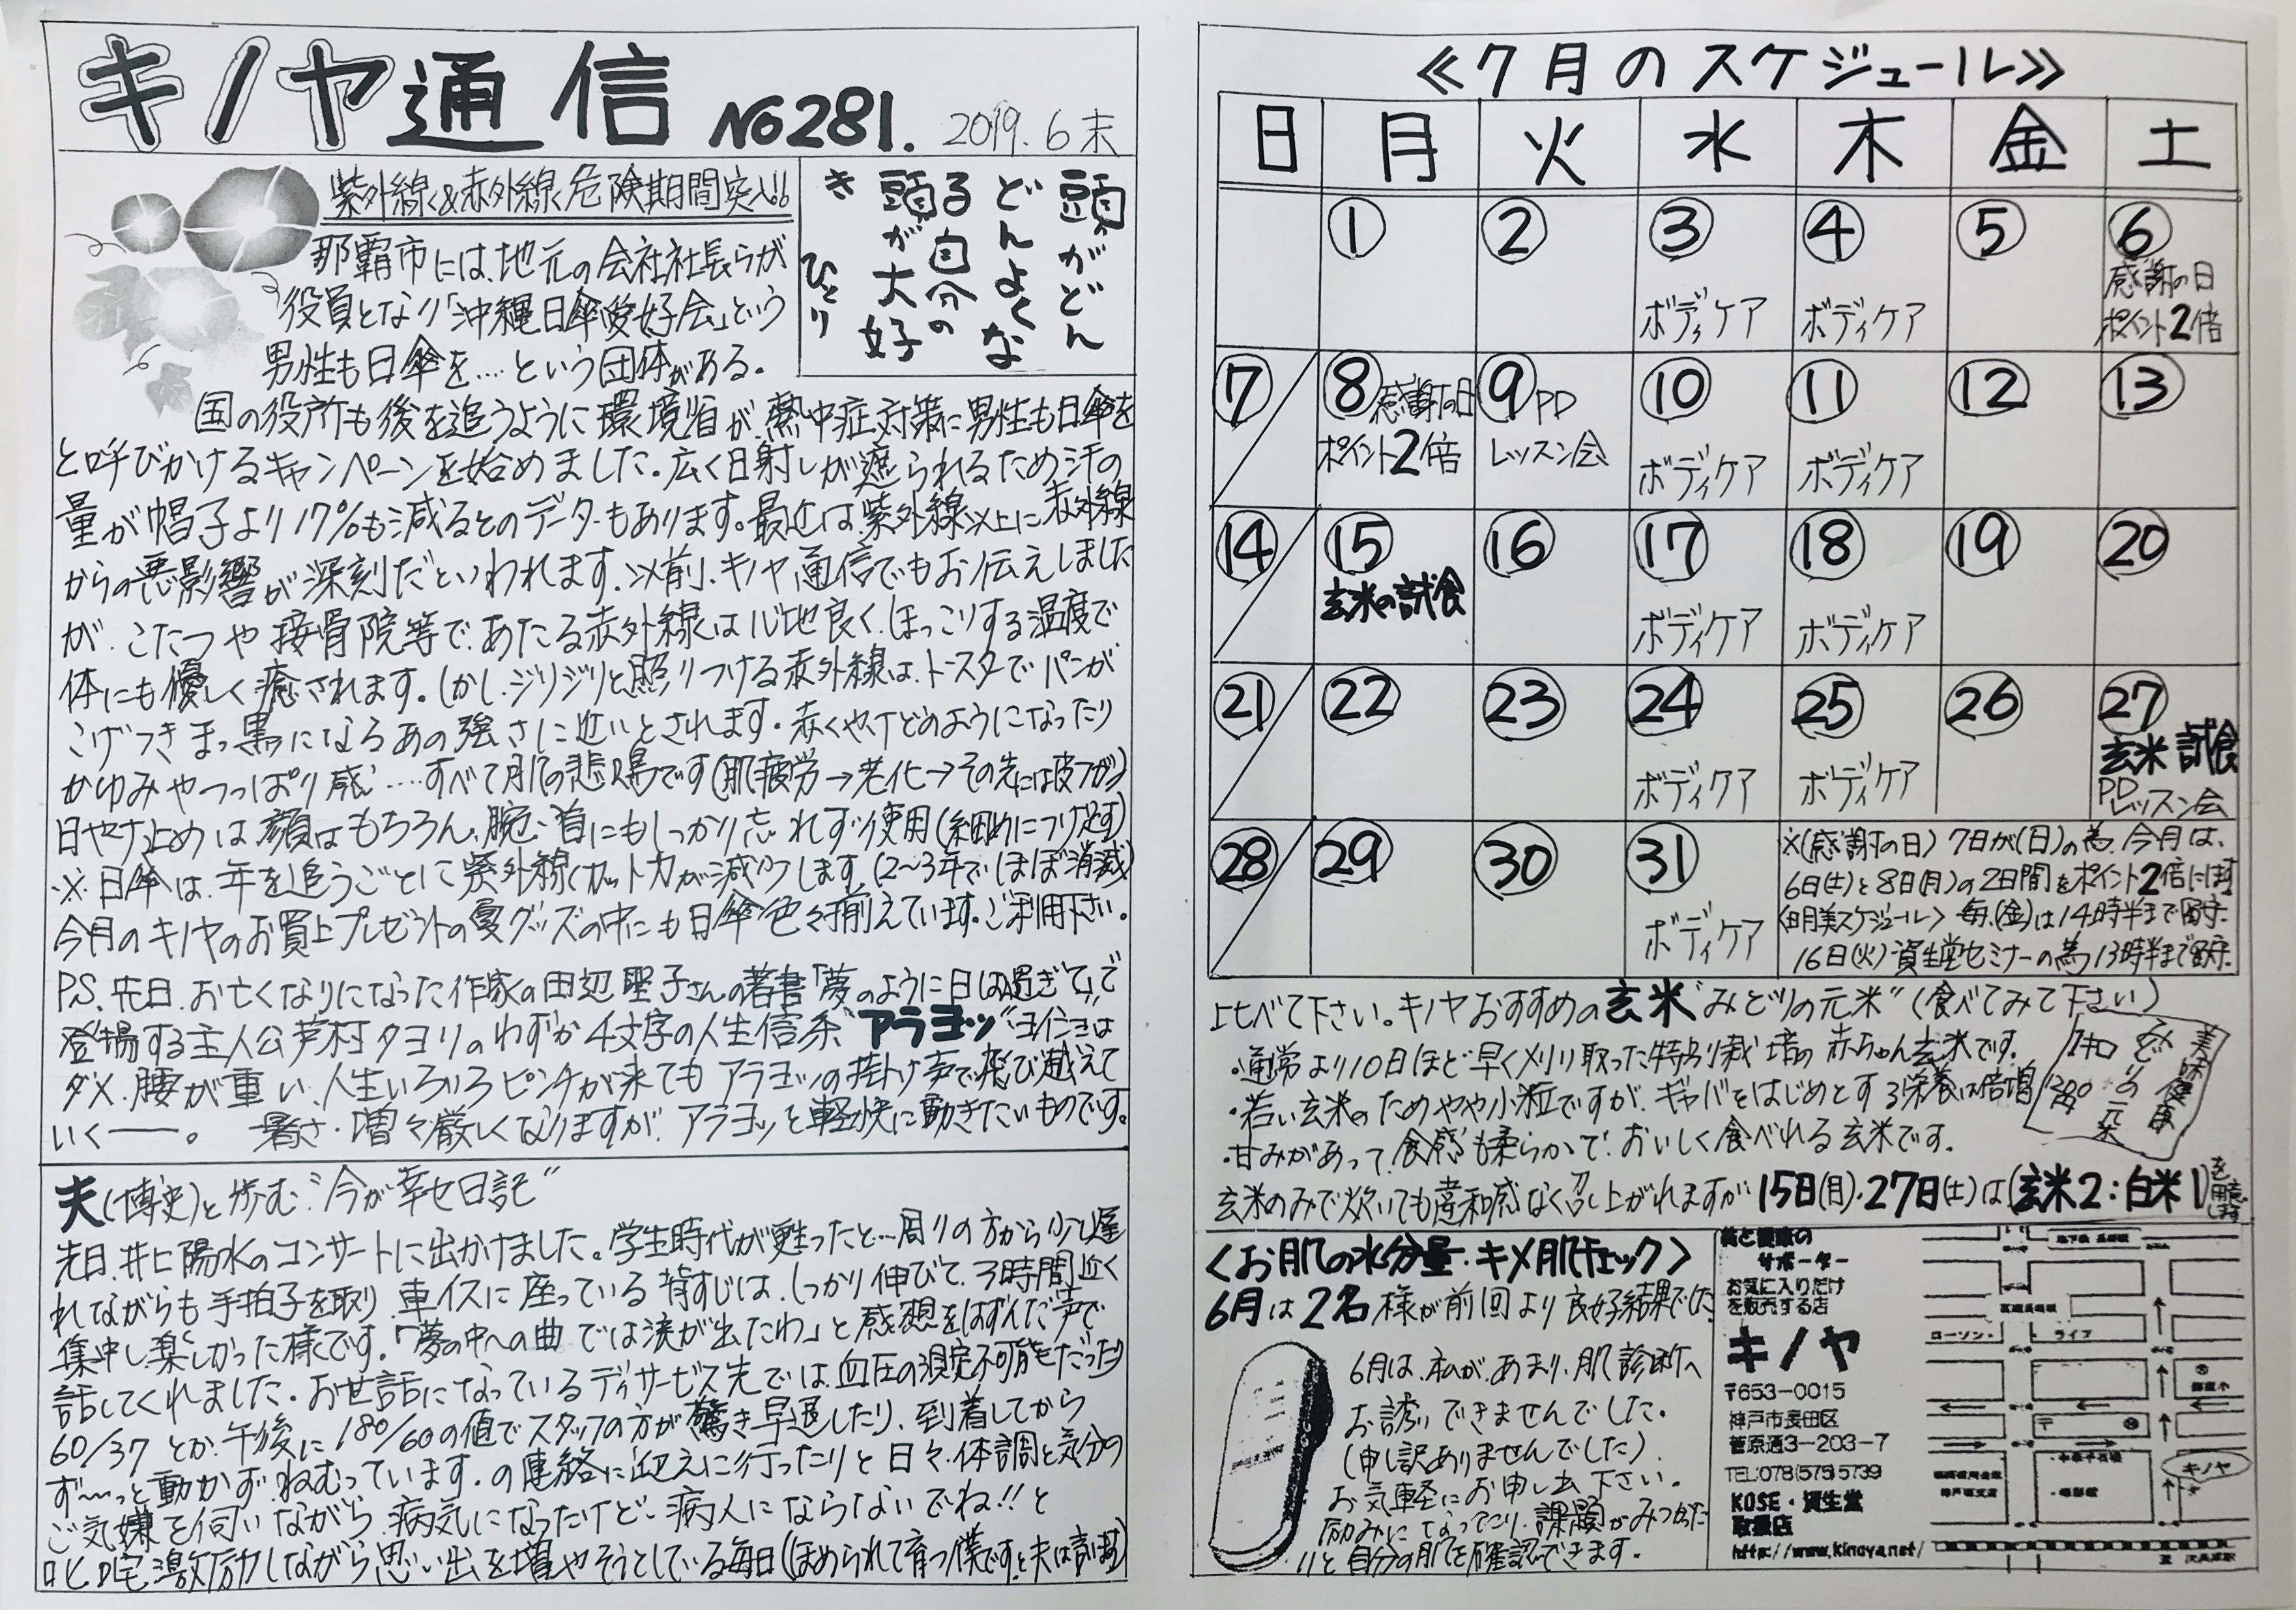 キノヤ通信 No281. 2019.6末
紫外線&赤外線危険期間突入!!
頭がどん
どんよくな
る自分の
頭が大好
き
ひとり
那覇市には、地元の会社社長らが
役員となり「沖縄日傘愛好会」という
男性も日傘を…という団体がある。
国の役所も後を追うように環境省が、熱中症対策に男性も日傘を
と呼びかけるキャンペーンを始めました。広く日射しが遮られるため汗の
量が帽子より17%も減るとのデーターもあります。最近は紫外線以上に赤外線
からの悪影響が深刻だといわれます。以前、キノヤ通信でもお伝えしました
が、こたつや接骨院等であたる赤外線は心地良く、ほっこりする温度で
体にも優しく癒されます。しかし、ジリジリと照りつける赤外線は、トースターでパンが
こげつきまっ黒になるあの強さに近いとされます。赤くやけどのようになったり
かゆみやつっぱり感……すべて肌の悲鳴です(肌疲労→老化→その先には皮フガン)
日やけ止めは顔はもちろん、腕、首にもしっかり忘れずに使用(細めにつけ足す)
※日傘は、年を追うごとに紫外線カット力が減少します(2〜3年でほぼ消滅)
今月のキノヤのお買上プレゼントの夏グッズの中にも日傘色々揃えています。ご利用下さい。
P.S.先日、お亡くなりになった作家の田辺聖子さんの著書「夢のように日は過ぎて」で
登場する主人公芦村タヨリのわずか4文字の人生信条"アラヨッ"ヨイショは
ダメ、腰が重い、人生いろいろピンチが来てもアラヨッの掛け声で飛び越えて
いく――。 暑さ増々厳しくなりますが、アラヨッと軽快に動きたいものです。
夫(博史)と歩む"今が幸せ日記"
先日、井上陽水のコンサートに出かけました。学生時代が甦ったと…周りの方から少し遅
れながらも手拍子を取り、車イスに座っている背すじは、しっかり伸びて、3時間近く
集中し楽しかった様です。「夢の中への曲では涙が出たわ」と感想をはずんだ声で
話してくれました。お世話になっているディサービス先では、血圧の測定不可能だったり
60/37とか、午後に180/60の値でスタッフの方が驚き早退したり、到着してから
ず〜っと動かず、ねむっています。の連絡に迎えに行ったりと日々、体調と気分の
ご機嫌を伺いながら、病気になったけど、病人にならないでね!!と
叱咤激励しながら思い出を増やそうとしている毎日(ほめられて育つ僕です、と夫は言います)
≪7月のスケジュール≫
日 月 火 水 木 金 土
① ② ③ ④ ⑤ ⑥
ボディケア ボディケア 感謝の日
ポイント2倍
⑦ ⑧感謝の日 ⑨PD ⑩ ⑪ ⑫ ⑬
ポイント2倍 レッスン会 ボディケア ボディケア
⑭ ⑮ ⑯ ⑰ ⑱ ⑲ ⑳
玄米の試食 ボディケア ボディケア
㉑ ㉒ ㉓ ㉔ ㉕ ㉖ ㉗
ボディケア ボディケア 玄米試食
PDレッスン会
㉘ ㉙ ㉚ ㉛
ボディケア
※(感謝の日)7日が(日)の為、今月は、
6日(土)と8日(月)の2日間をポイント2倍にします
〈由美スケジュール〉毎(金)は14時半まで留守
16日(火)資生堂セミナーの為13時半まで留守
比べて下さい。キノヤおすすめの玄米"みどりの元米"(食べてみて下さい)
・通常より10日ほど早く刈り取った特別栽培の赤ちゃん玄米です。
・若い玄米のためやや小粒ですが、ギャバをはじめとする栄養は倍増
・甘みがあって、食感も柔らかで、おいしく食べれる玄米です。
美味健康
みどりの元米
1キロ
1300円
玄米のみで炊いても違和感なく召し上がれますが15日(月)・27日(土)は(玄米2:白米1)を用意します
〈お肌の水分量・キメ肌チェック〉
6月は2名様が前回より良好結果でした
6月は、私が、あまり、肌診断へ
お誘いできませんでした。
(申し訳ありませんでした)
お気軽にお申し出下さい。
励みになったり、課題がみつかった
りと自分の肌を確認できます。
美と健康の
サポーター
お気に入りだけ
を販売する店
キノヤ
〒653-0015
神戸市長田区
菅原通3-203-7
TEL:078(575)5739
KOSE・資生堂
取扱店
http://www.kinoya.net/
ローソン
ライフ
キノヤ